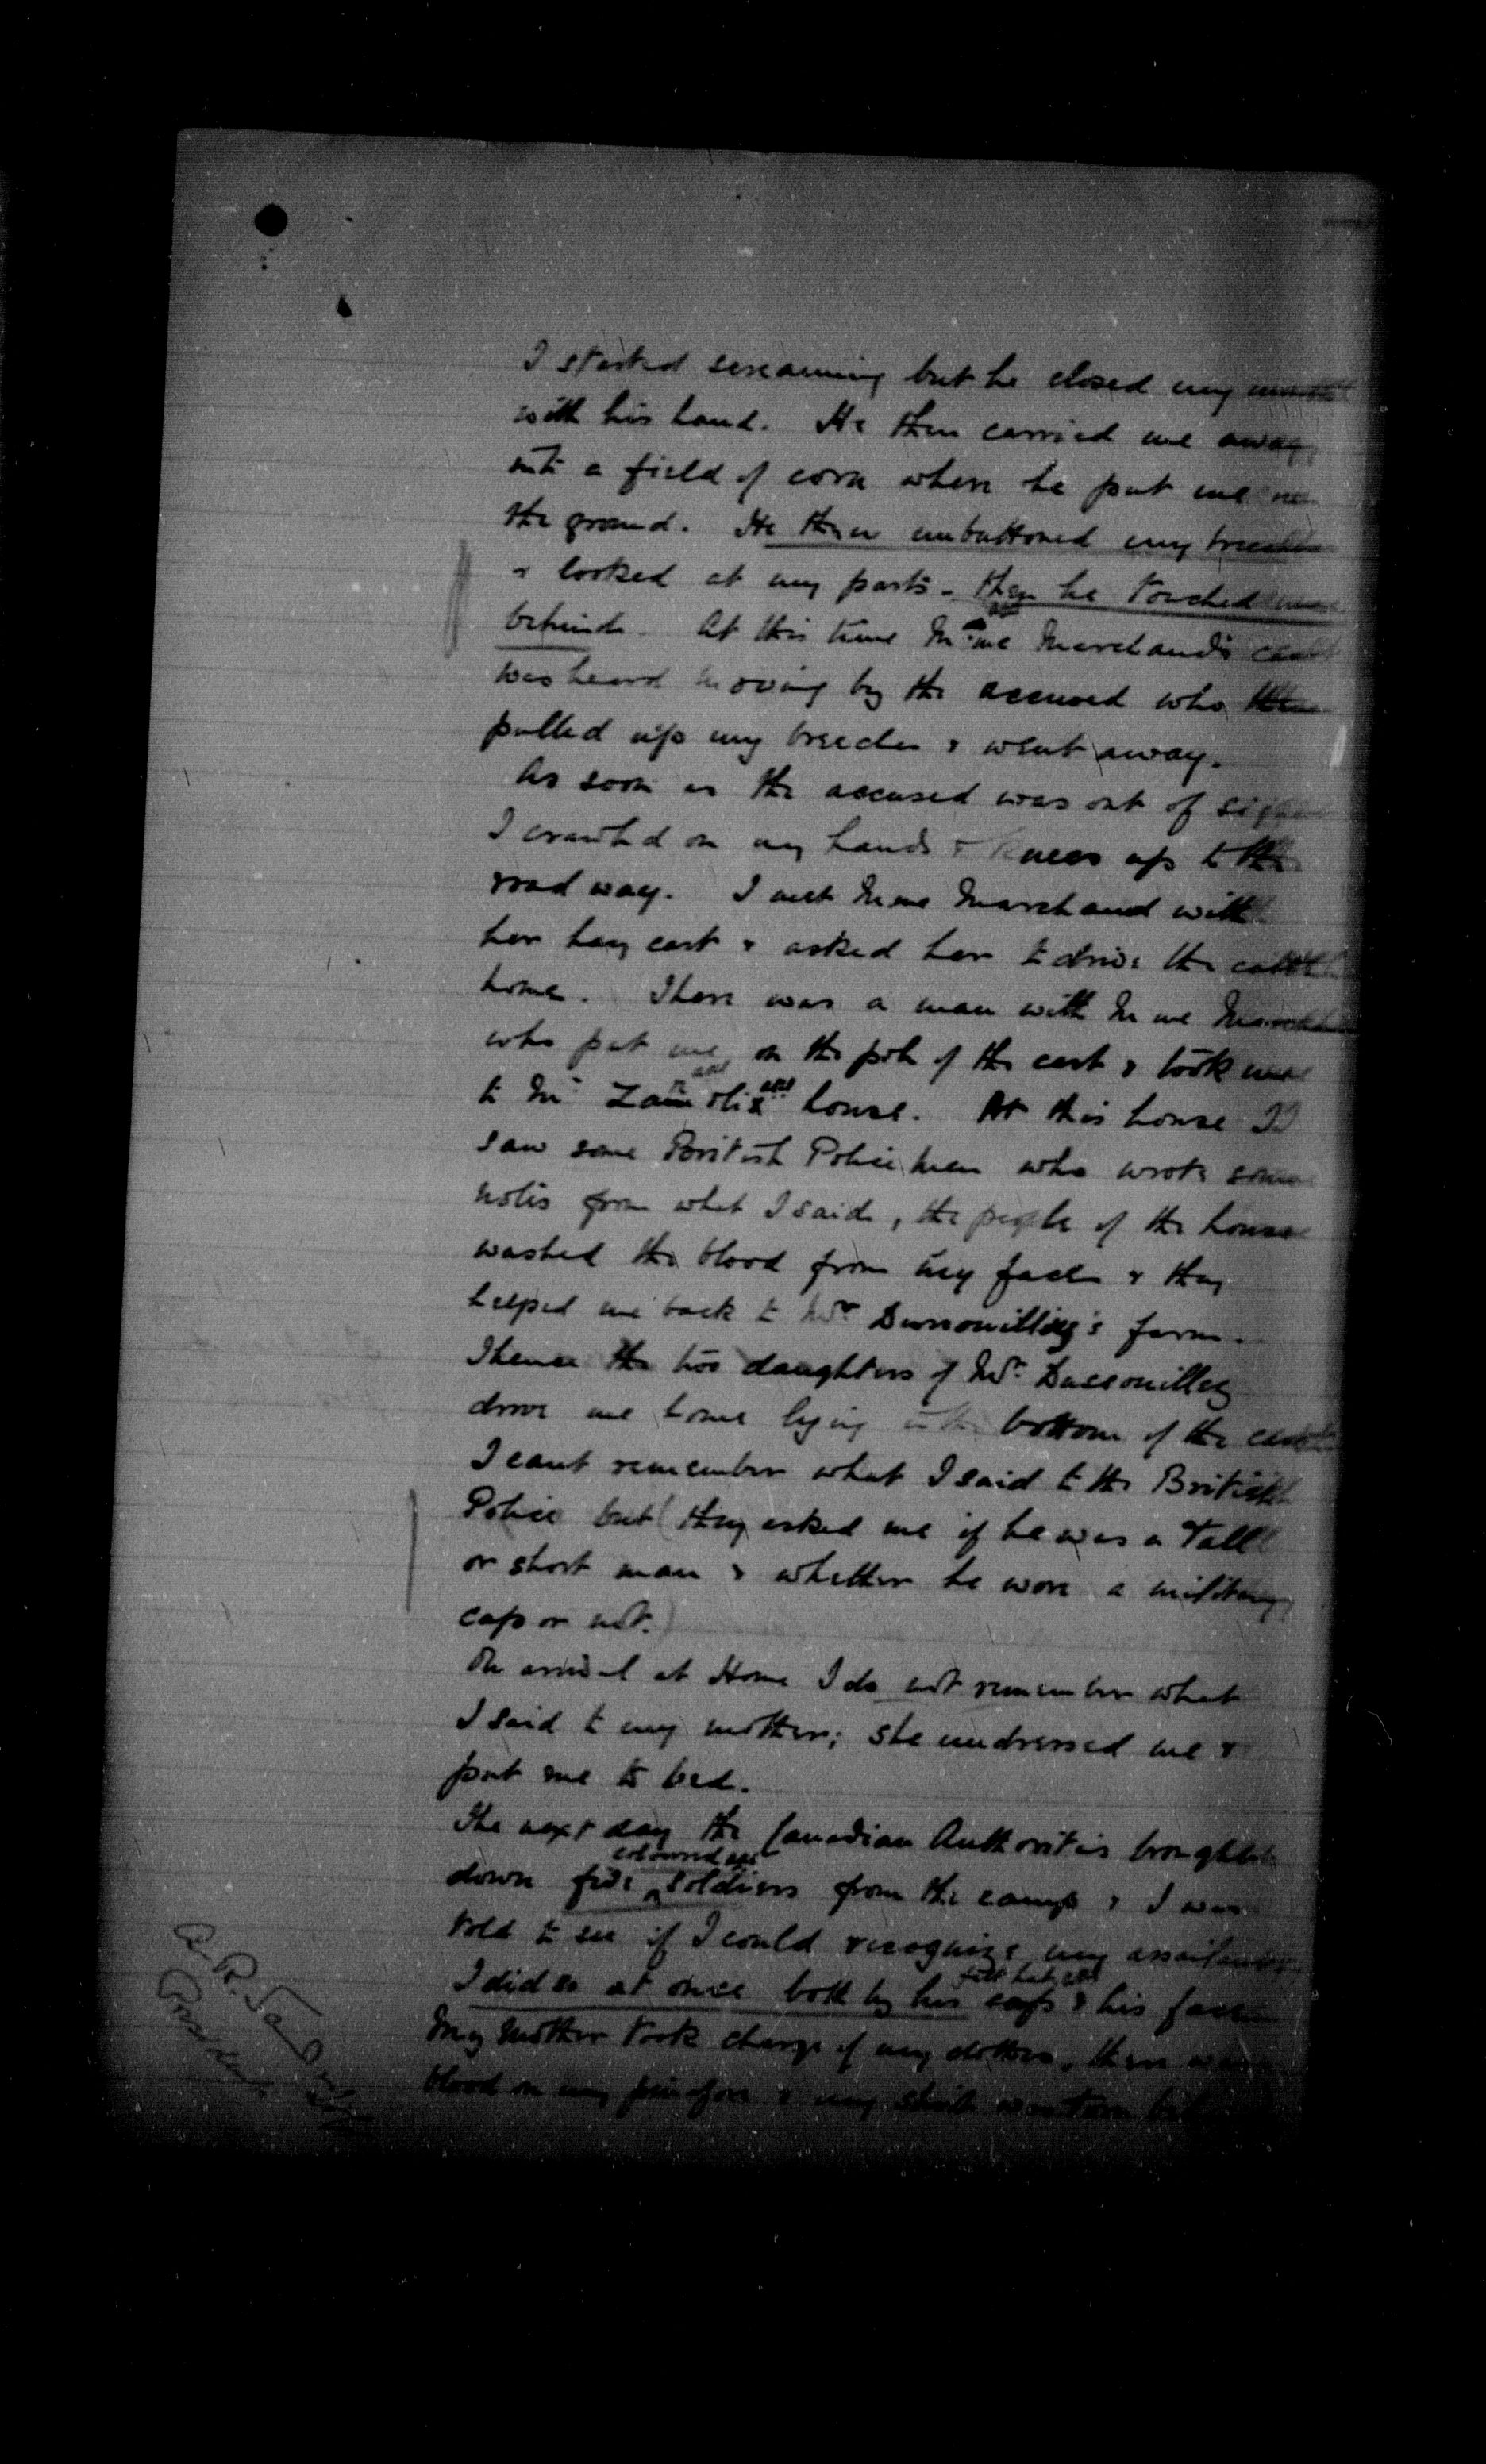 I started screaming but he closed my mouth
with his hand. He then carried me away,
into a field of corn where he put me on
the ground. He then unbuttoned my breeches
& looked at my parts - then he touched my
behind. At this time Mme Marchand's cart
was heard moving by the accused who then
pulled up my breeches & went away.
As soon as the accused was out of sight
I crawled on my hands & knees up to the
road way. I met Mme Marchand with
her hay cart & asked her to drive the cattle
home. There was a man with Mme Marchand
who put me on the pole of the cart & took me
to house. At this house I
saw some British Police men who wrote some
notes from what I said, the people of the house
washed the blood from my face & they
helped me back to Mr farm.
Thence the two daughters of Mr
drove me home lying in the bottom of the cart
I cant remember what I said to the British
Police but (they asked me if he was a Tall
or short man & whether he wore a military
cap or not.)
On arrival at Home I do not remember what
I said to my mother; she undressed me &
put me to bed.
The next day the Canadian Authorities brought
coloured
down five soldiers from the camp & I was
told to see if I could recognize my assailant
felt hat
I did so at once both by his cap & his face
My Mother took charge of my clothes, there was
blood on my pinafore & my skirt was torn
President